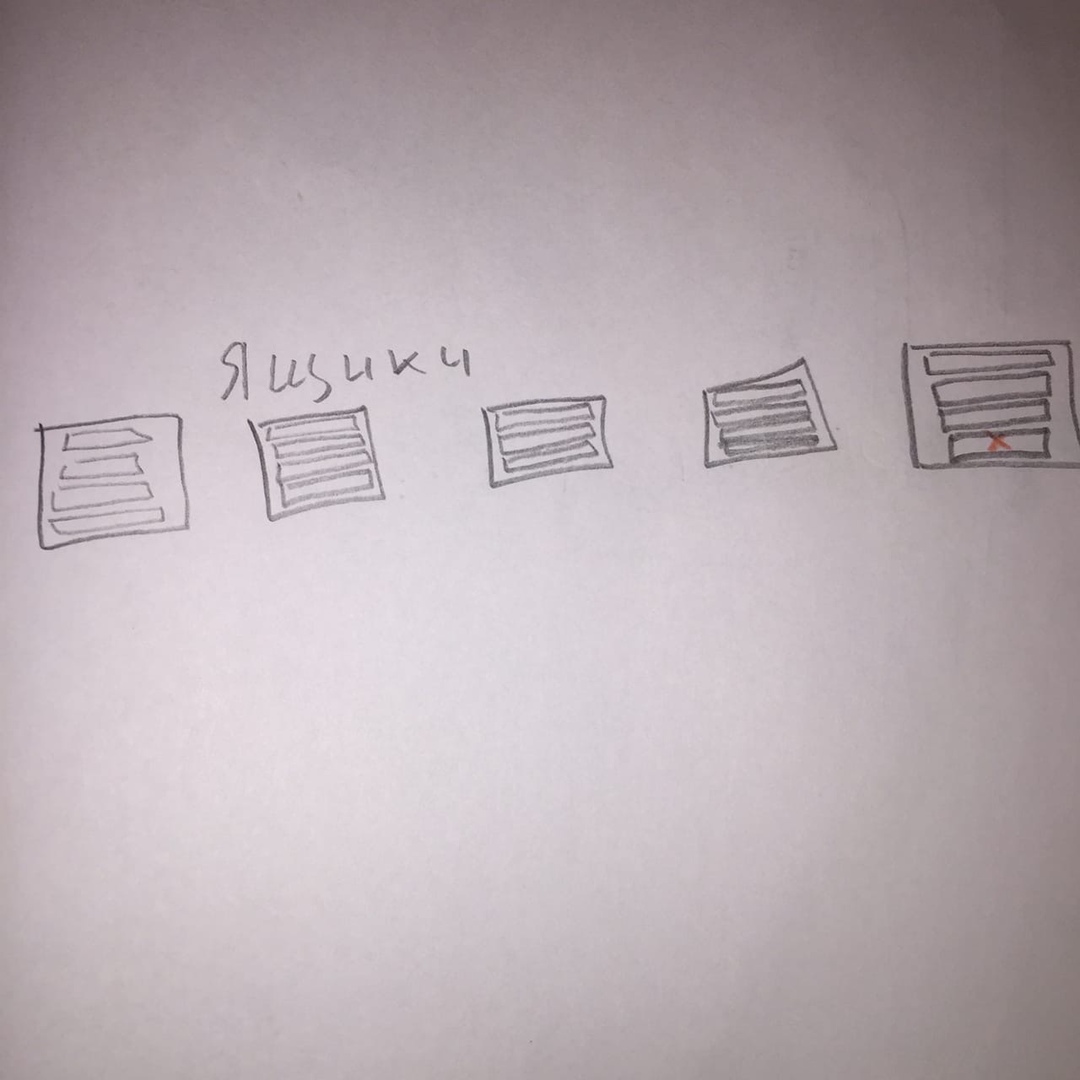 Ящики